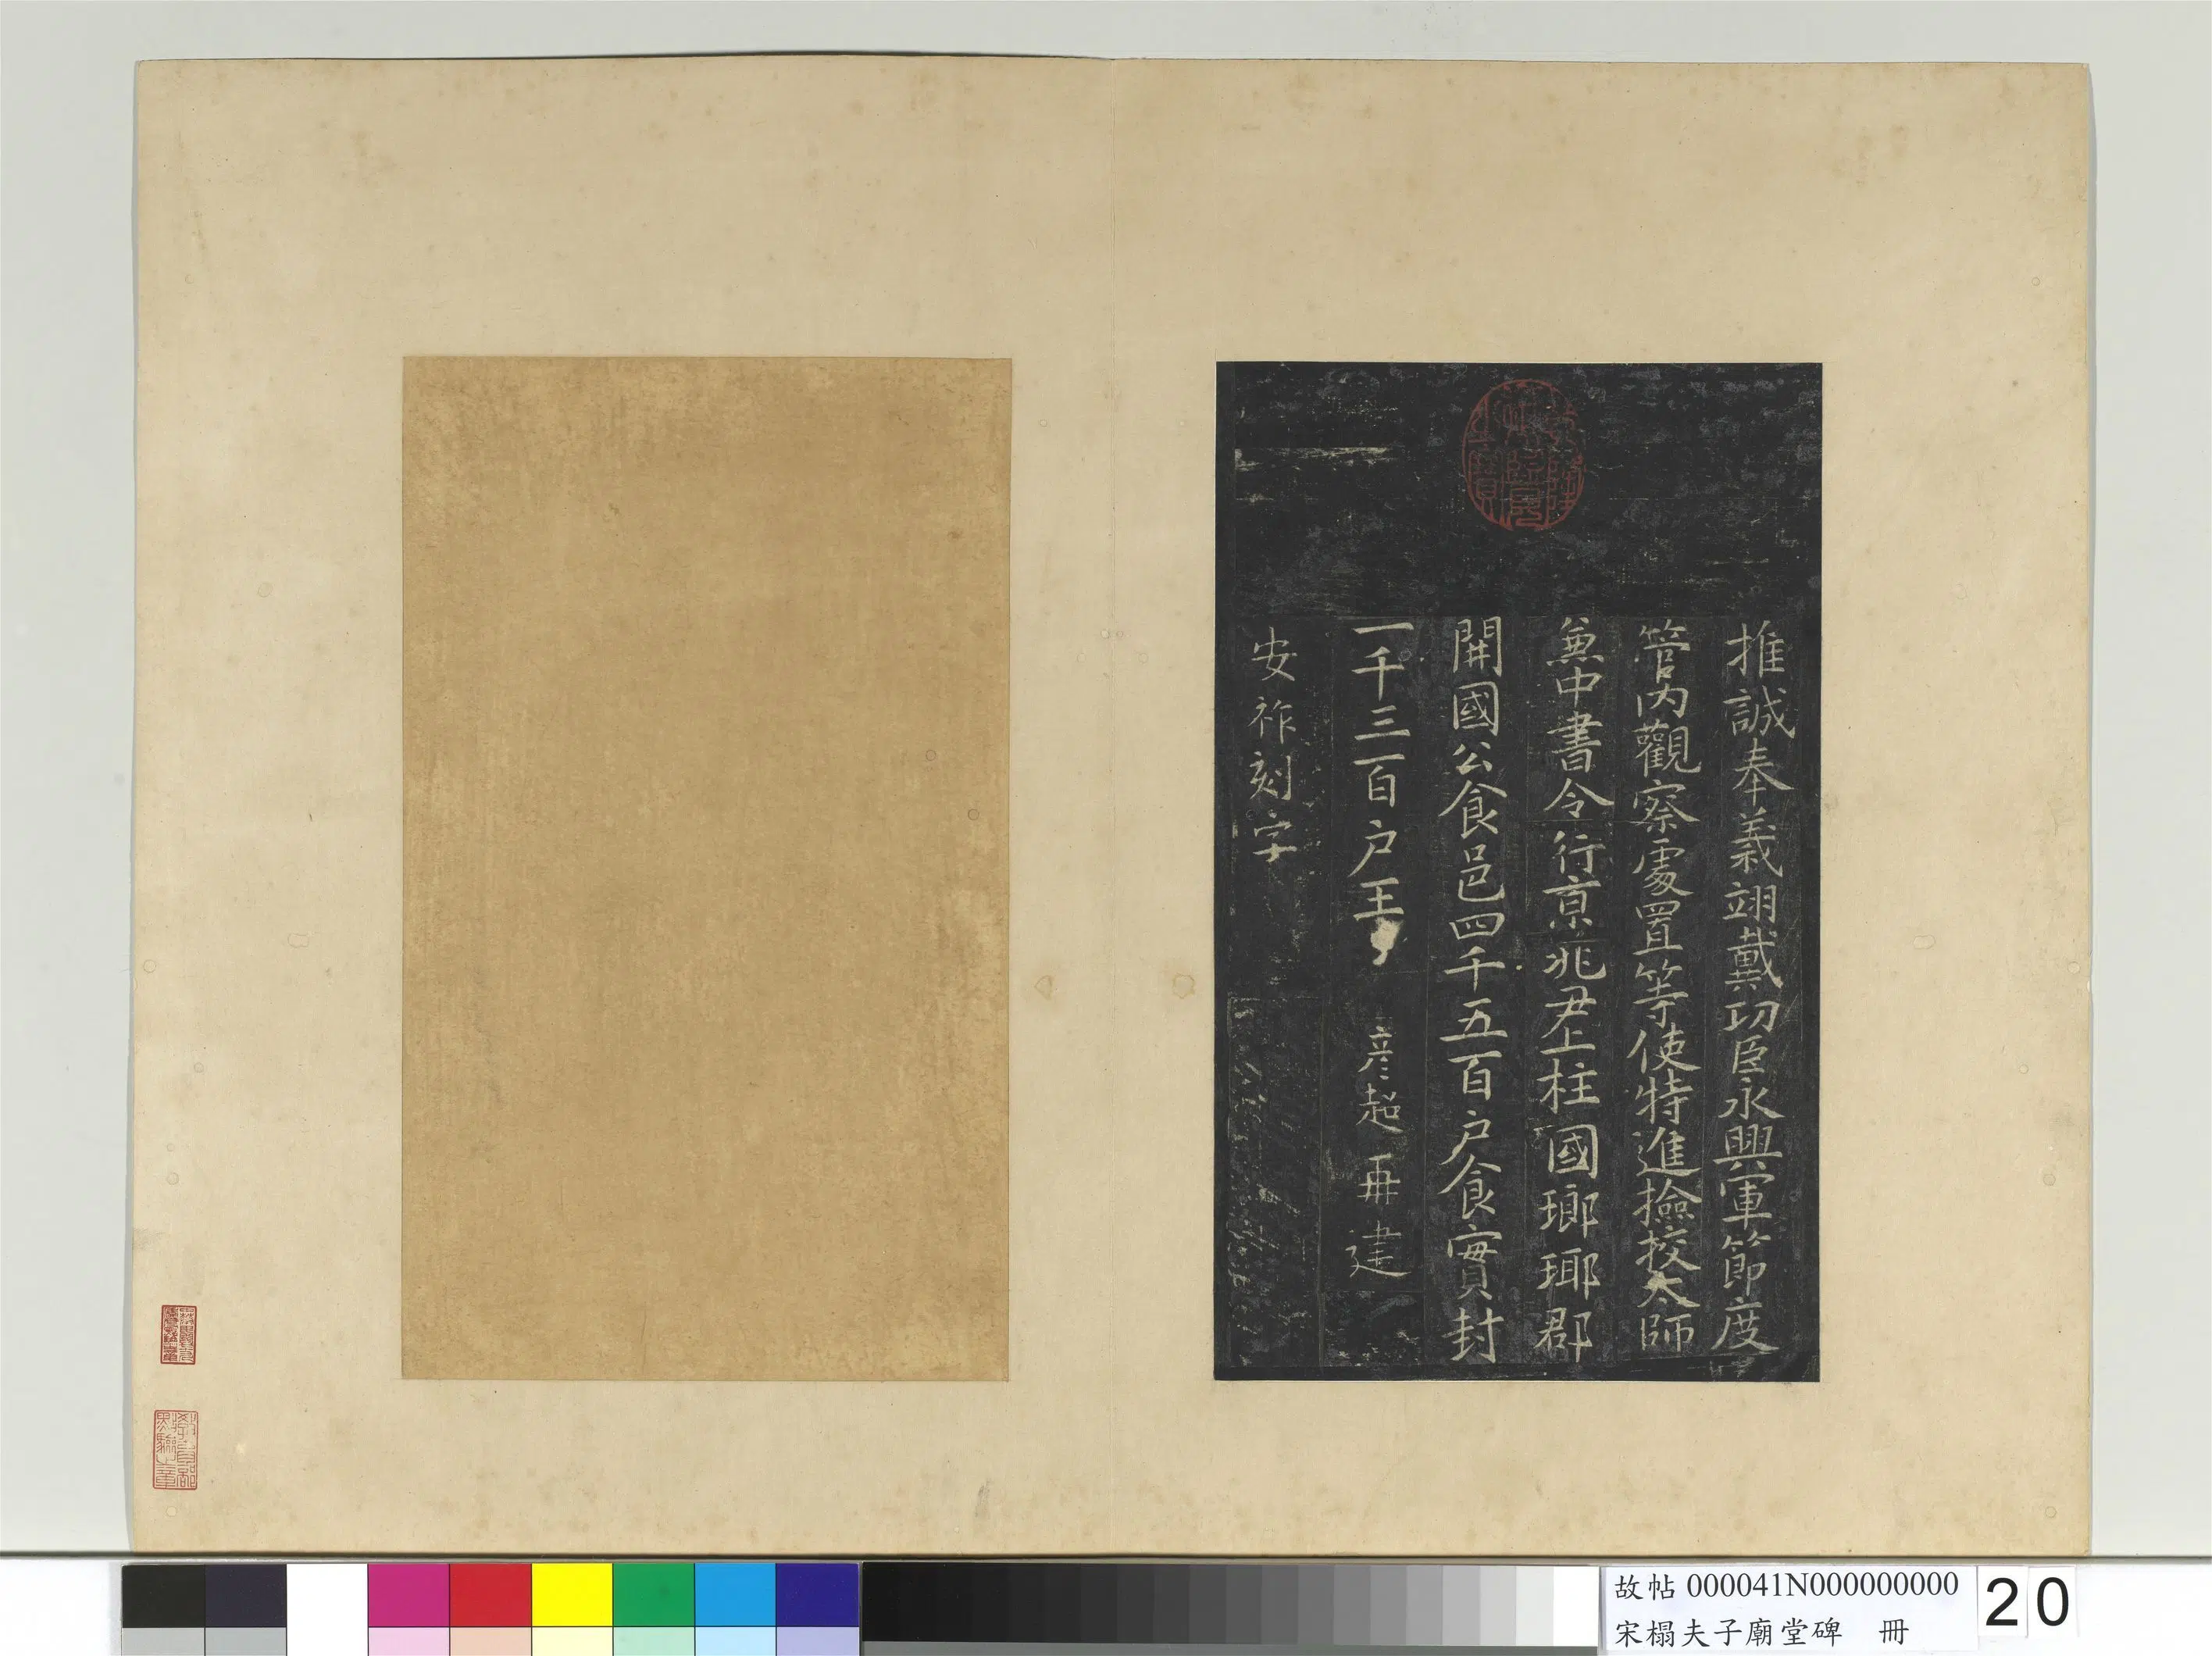 推誠奉義翊戴功臣永興軍節度
管內觀察處置等使特進撿挍太師
兼中書令行京兆尹上柱國瑯琊郡
開國公食邑四千五百戶食實封
一千三百戶王彥超再建
安祚刻字
乾隆御覽之寶
故帖 000041N000000000
宋榻夫子廟堂碑 冊
20